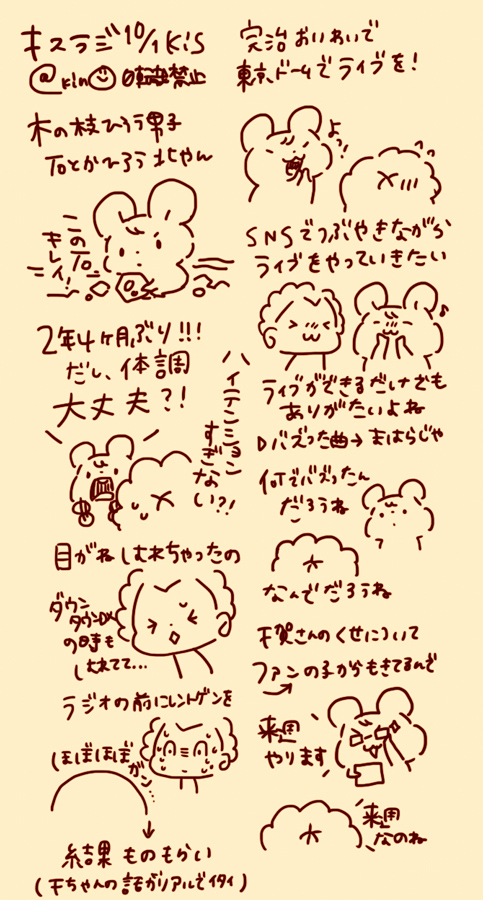 キスラジ10/1 Kis
@kin 転載禁止
木の枝ひろう男子
石とかひろう北やん
この石、
キレイ!
2年4ヶ月ぶり!!!
だし、体調
大丈夫?!
ハイテンション
すぎない?!
目がねしむれちゃったの
ダウン
タウンDX
の時も
しむれてて...
ラジオの前にレントゲンを
ほぼほぼ
ガン...
結果 ものもらい
(千ちゃんの話がリアルでイタイ)
完治おいわいで
東京ドームでライブを!
よっ!
SNSでつぶやきながら
ライブをやっていきたい
ライブができるだけでも
ありがたいよね
Dバズった曲→まはらじゃ
何でバズったん
だろうね
なんでだろうね
千賀さんのくせについて
ファンの子からもきてるんで
来週
やります
来週
なのね